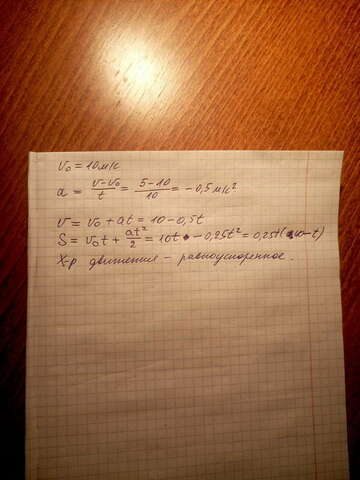 v₀ = 10 м/с
a = (v-v₀)/t = (5-10)/10 = -0,5 м/с²
v = v₀ + at = 10-0,5t
S = v₀t + at²/2 = 10t - 0,25t² = 0,25t(40-t)
Х-р движения - равноускоренное.